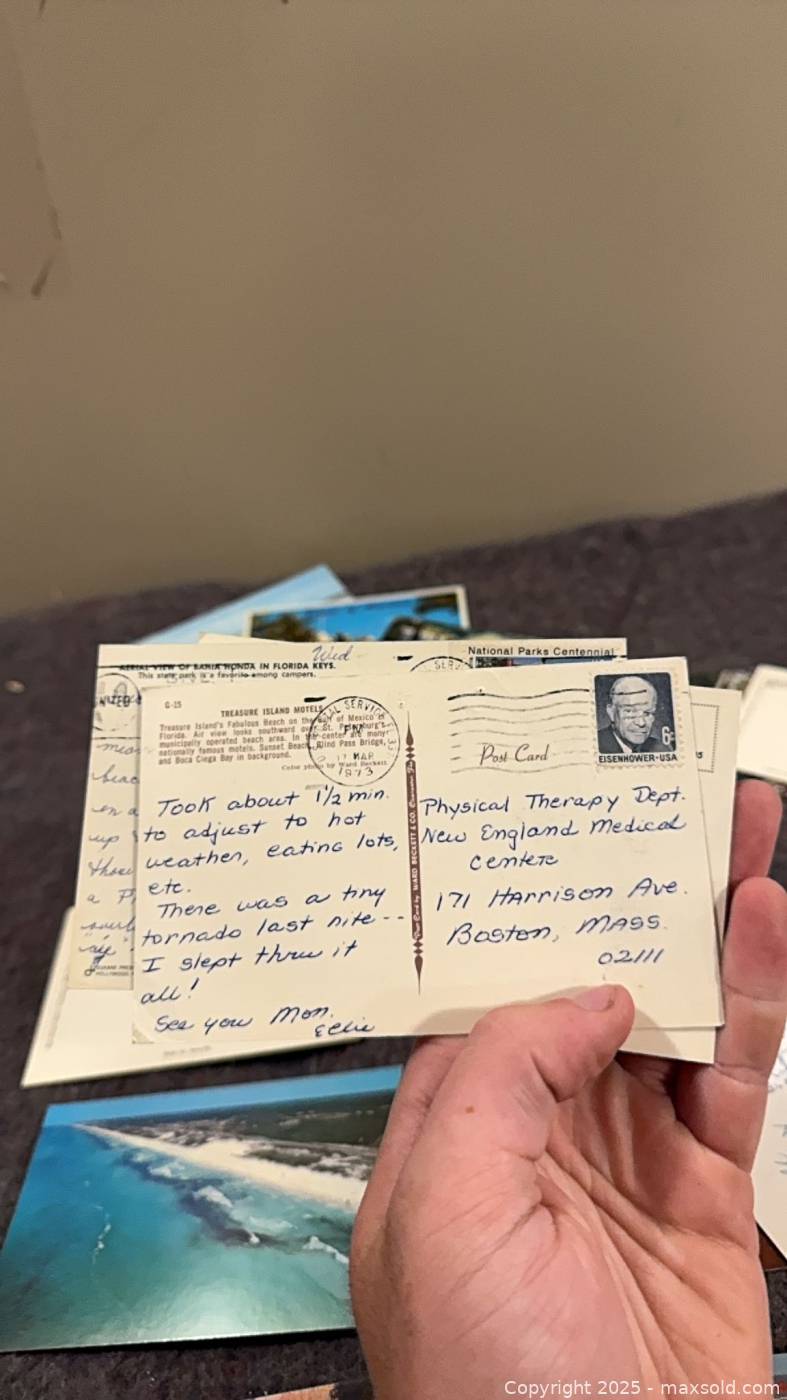 Wed
National Parks Centennial
AERIAL VIEW OF BAHIA HONDA IN FLORIDA KEYS.
This state park is a favorite among campers.
G-15
TREASURE ISLAND MOTELS
Treasure Island's Fabulous Beach on the Gulf of Mexico in
Florida. Air view looks southward over St. Petersburg's
municipally operated beach area. In the center are many
nationally famous motels. Sunset Beach, Blind Pass Bridge,
and Boca Ciega Bay in background.
Color photo by Ward Beckett
POSTAL SERVICE
PM
17 MAR
1973
Took about 1½ min.
to adjust to hot
weather, eating lots,
etc.
There was a tiny
tornado last nite--
I slept thru it
all!
See you Mon.
Post Card by WARD BECKETT & CO.
Post Card
6¢
EISENHOWER·USA
Physical Therapy Dept.
New England Medical
Center
171 Harrison Ave.
Boston, MASS.
02111
Copyright 2025 - maxsold.com